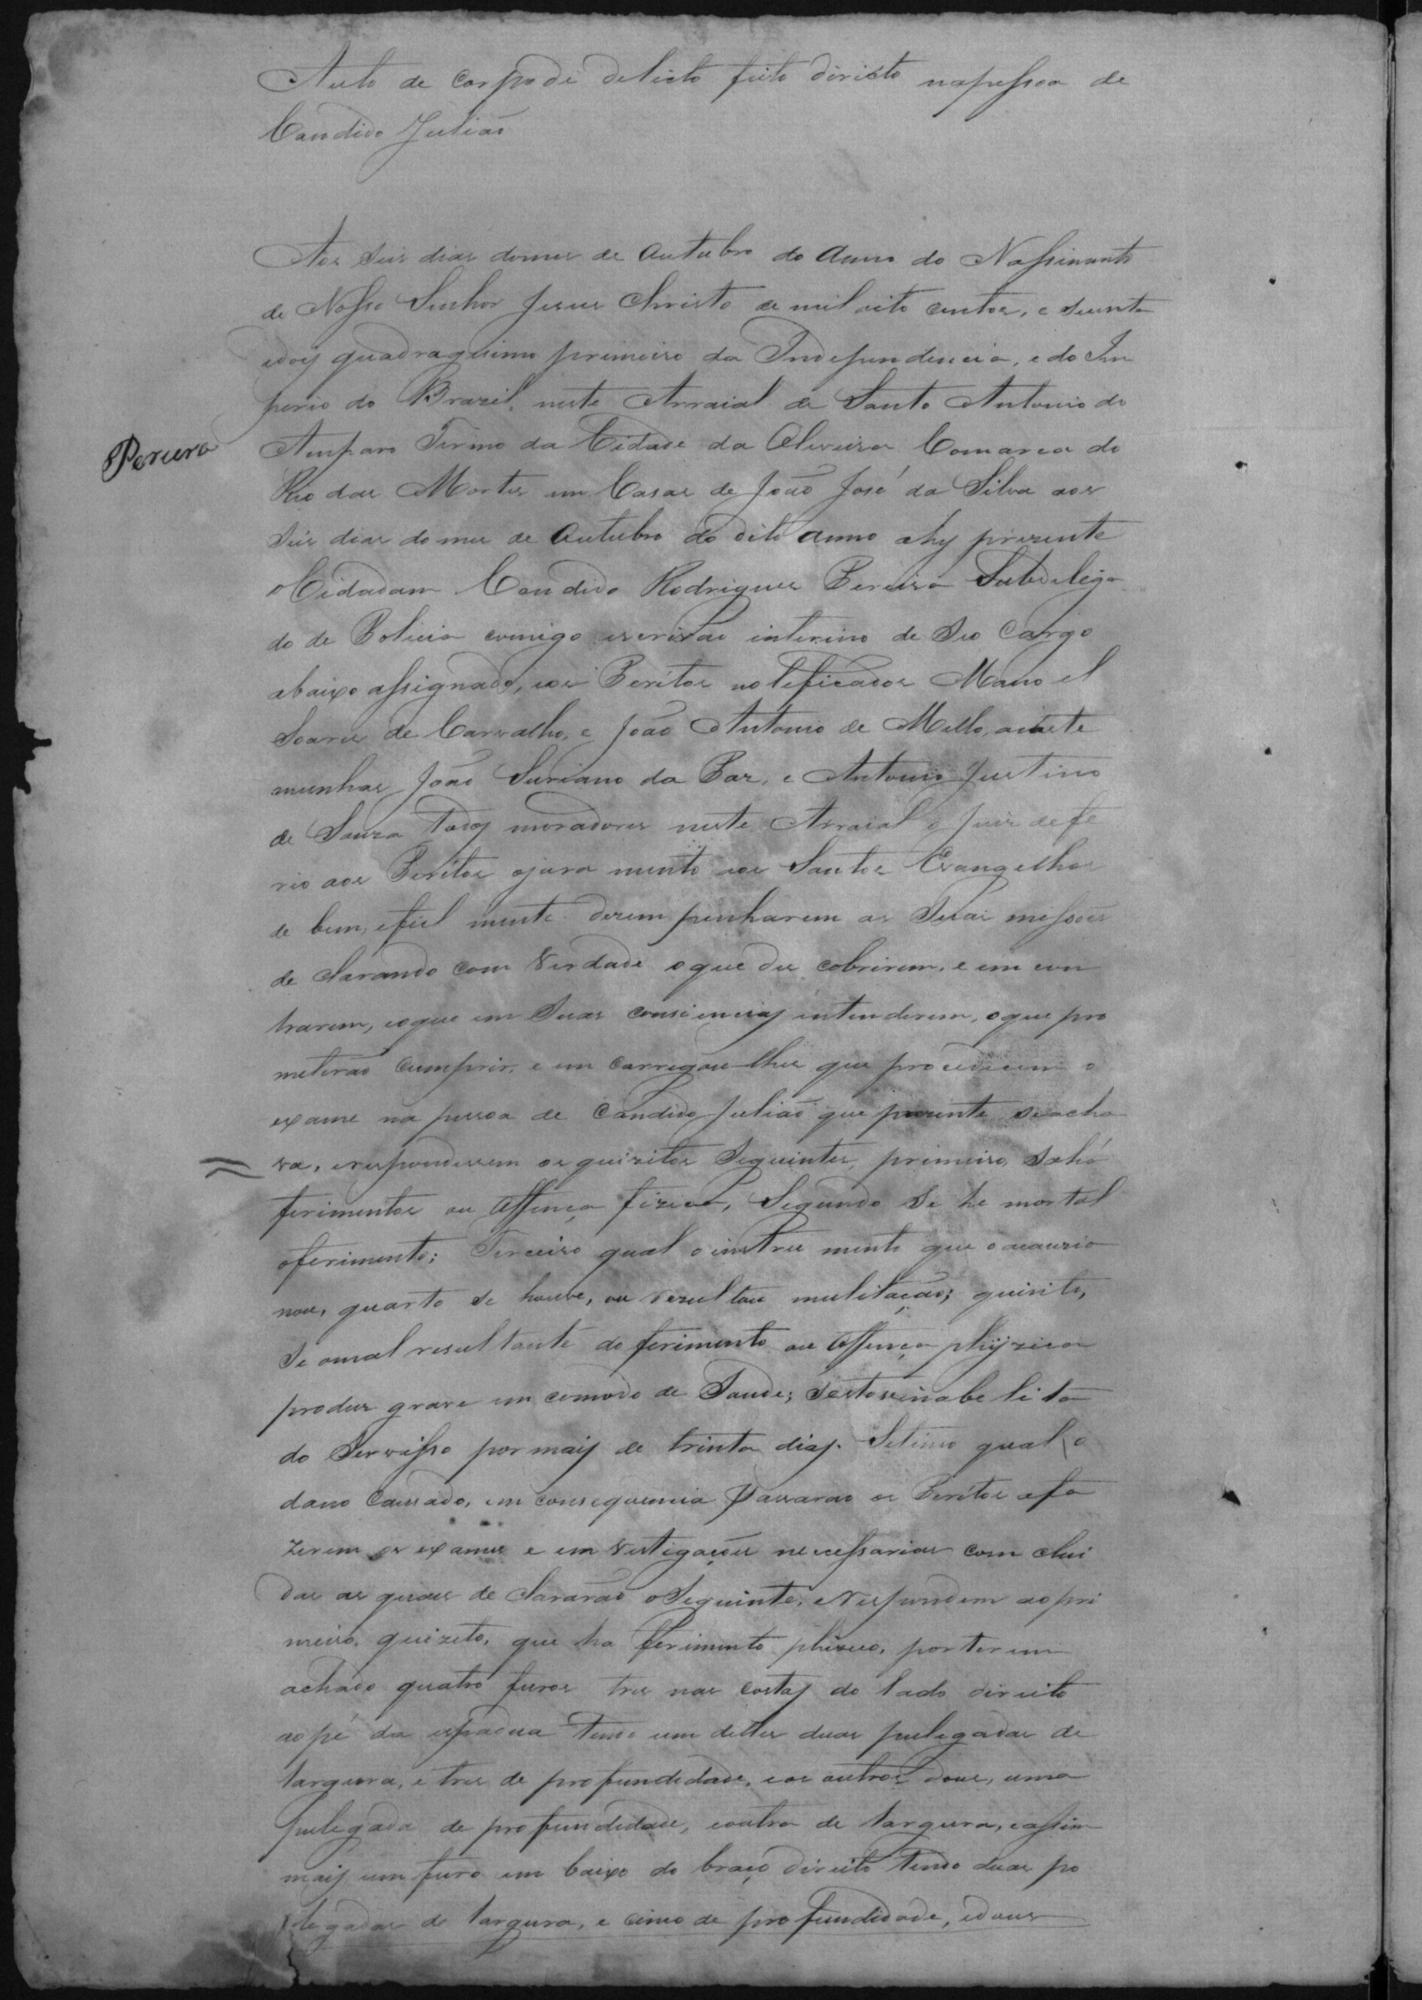 Auto de corpo de delicto feito dirécto napessoa de
Candido Julião
Aos seis dias domes de Outubro do Anno do Nassimento
de Nosso Senhor Jesus Christo de mil oito centos, e secenta
edois quadragesimo primeiro da Independencia, e do Im
perio do Brazil, neste Arraial de Santo Antonio do
Amparo Termo da Cidade da Oliveira Comarca do
Pereira
Rio das Mortes em Casas de João José da Silva aos
seis dias do mes de Outubro do dito anno ahy prezente
o Cidadam Candido Rodrigues Pereira Subdelega
do de Policia comigo escrivão interino de seo Cargo
abaixo assignado, eos Peritos noteficados Manoel
Soares de Carvalho, e João Antonio de Mello, aiste
munhas João Suriano da Paz, e Antonio Justino
de Souza Todos moradores neste Arraial o Juis defe
rio aos Peritos ojura mento aos Santos Evangelhos
de bem, efiel mente dezem penharem as suas missões
de clarando com verdade oque des cobrirem, e em con
trarem, eoque em suas consiencias intenderem, oque pro
meterão cumprir, e em carregou-lhes que procedecem o
exame na pessoa de Candido Julião que prezente seacha
va, erespondessem os quizitos seguintes, primeiro, sehá
ferimentos ou offença fizica, Segundo se he mortal
oferimento; Terceiro qual oinstru mento que oocazio
nou, quarto se houve, ou rezultou mulitação; quinto,
se omal resultante do ferimento ou offença phyzica
produs grave in comodo de saude; sesto seinabelita
do servisso por mais de trinta dias. Setimo qual o
dano cauzado, em consequencia passarão os Peritos afa
zerem os exames e in vestigações necessarias com clui
das as quaes de clararão oseguinte, eRespondem aopri
meiro, quizeto, que ha ferimento phizico, por terem
achado quatro furos tres nas costas do lado direito
aopé da espadua tendo um delles duas pulegadas de
largura, e tres de profundidade, eos outros dous, uma
pulegada de profundidade, eoutra de largura, eassim
mais um furo em baixo do braço direito tendo duas po
legadas de largura, e cinco de profundidade, edous